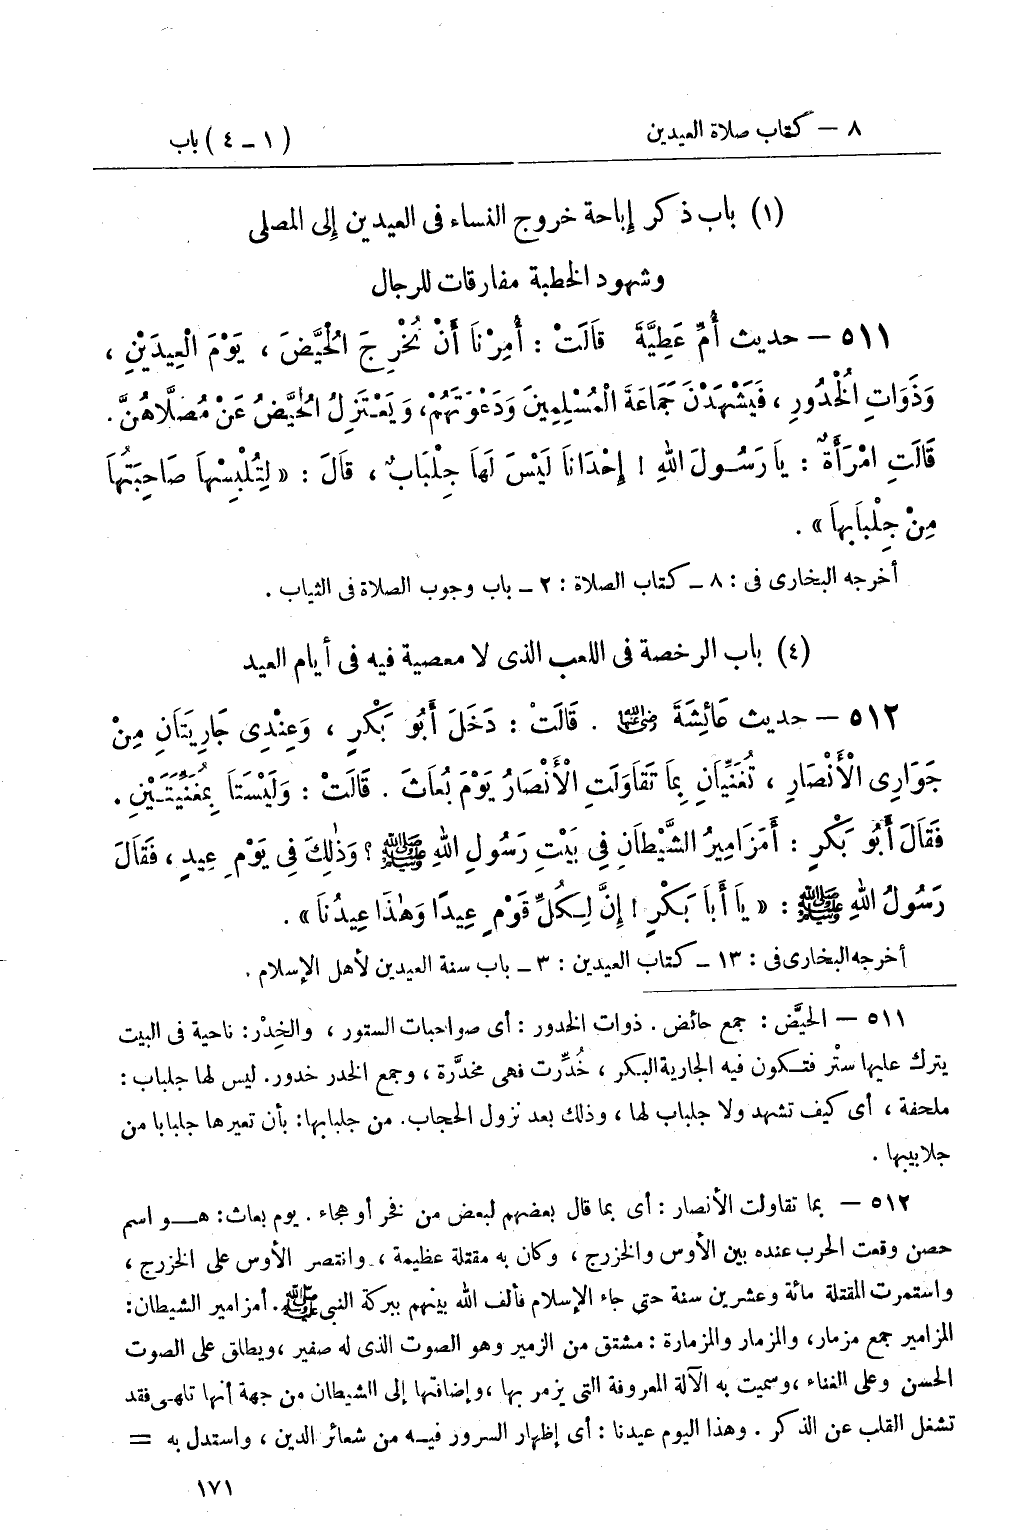 ٨ – كتاب صلاة العيدين (١ – ٤) باب
(١) باب ذكر إباحة خروج النساء فى العيدين إلى المصلى
وشهود الخطبة مفارقات للرجال
٥١١ – حديث أُمِّ عَطِيَّةَ قَالَتْ : أُمِرْنَا أَنْ نُخْرِجَ الْحُيَّضَ ، يَوْمَ الْعِيدَيْنِ ،
وَذَوَاتِ الْخُدُورِ ، فَيَشْهَدْنَ جَمَاعَةَ الْمُسْلِمِينَ وَدَعْوَتَهُمْ، وَيَعْتَزِلُ الْحُيَّضُ عَنْ مُصَلَّاهُنَّ .
قَالَتِ امْرَأَةٌ : يَا رَسُولَ اللهِ ! إِحْدَانَا لَيْسَ لَهَا جِلْبَابٌ ، قَالَ : « لِتُلْبِسْهَا صَاحِبَتُهَا
مِنْ جِلْبَابِهَا » .
أخرجه البخارى فى : ٨ – كتاب الصلاة : ٢ – باب وجوب الصلاة فى الثياب .
(٤) باب الرخصة فى اللعب الذى لا معصية فيه فى أيام العيد
٥١٢ – حديث عَائِشَةَ رضي الله عنها . قَالَتْ : دَخَلَ أَبُو بَكْرٍ ، وَعِنْدِى جَارِيَتَانِ مِنْ
جَوَارِى الْأَنْصَارِ ، تُغَنِّيَانِ بِمَا تَقَاوَلَتِ الْأَنْصَارُ يَوْمَ بُعَاثَ . قَالَتْ : وَلَيْسَتَا بِمُغَنِّيَتَيْنِ .
فَقَالَ أَبُو بَكْرٍ : أَمَزَامِيرُ الشَّيْطَانِ فِى بَيْتِ رَسُولِ اللهِ ﷺ ؟ وَذٰلِكَ فِى يَوْمِ عِيدٍ ، فَقَالَ
رَسُولُ اللهِ ﷺ : « يَا أَبَا بَكْرٍ ! إِنَّ لِكُلِّ قَوْمٍ عِيدًا وَهٰذَا عِيدُنَا » .
أخرجه البخارى فى : ١٣ – كتاب العيدين : ٣ – باب سنة العيدين لأهل الإسلام .
٥١١ – الحيَّض : جمع حائض . ذوات الخدور : أى صواحبات الستور ، والخِدْر: ناحية فى البيت
يترك عليها ستْر فتكون فيه الجارية البكر ، خُدِّرت فهى مخدَّرة ، وجمع الخدر خدور. ليس لها جلباب :
ملحفة ، أى كيف تشهد ولا جلباب لها ، وذلك بعد نزول الحجاب. من جلبابها: بأن تعيرها جلبابا من
جلابيبها .
٥١٢ – بما تقاولت الأنصار : أى بما قال بعضهم لبعض من فخر أو هجاء . يوم بعاث: هو اسم
حصن وقعت الحرب عنده بين الأوس والخزرج ، وكان به مقتلة عظيمة ، وانتصر الأوس على الخزرج ،
واستمرت المقتلة مائة وعشرين سنة حتى جاء الإسلام فألف الله بينهم ببركة النبى ﷺ . أمزامير الشيطان:
المزامير جمع مزمار، والمزمار والمزمارة : مشتق من الزمير وهو الصوت الذى له صفير ، ويطلق على الصوت
الحسن وعلى الغناء ، وسميت به الآلة المعروفة التى يزمر بها ، وإضافتها إلى الشيطان من جهة أنها تلهى فقد
تشغل القلب عن الذكر . وهذا اليوم عيدنا : أى إظهار السرور فيه من شعائر الدين ، واستدل به =
١٧١